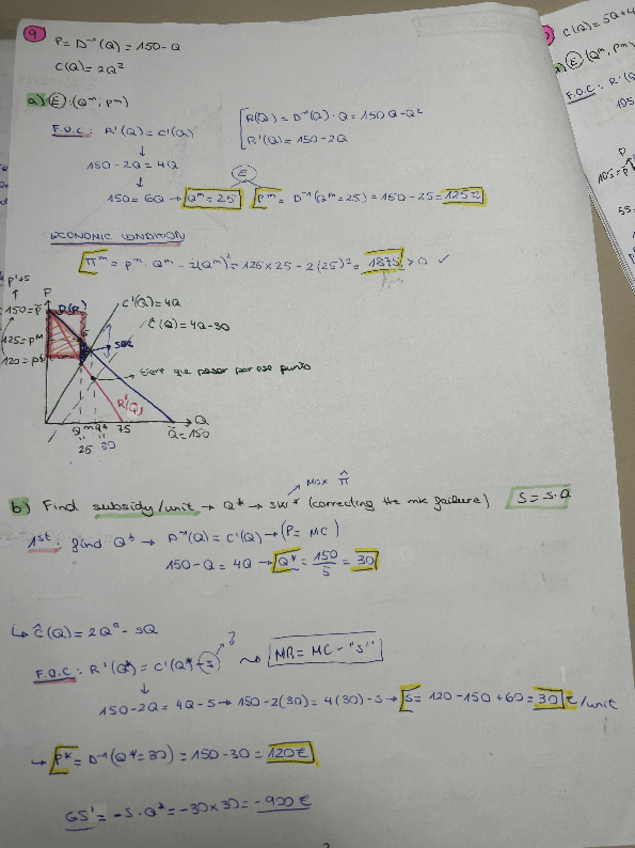 9
P = D⁻¹(Q) = 150 - Q
C(Q) = 2Q²
a) E: (Qᵐ, pᵐ)
F.O.C: R'(Q) = C'(Q)
R(Q) = D⁻¹(Q) · Q = 150Q - Q²
R'(Q) = 150 - 2Q
↓
150 - 2Q = 4Q
↓
E
150 = 6Q → Qᵐ = 25 Pᵐ = D⁻¹(Qᵐ = 25) = 150 - 25 = 125
ECONOMIC CONDITION
πᵐ = pᵐ · Qᵐ - 2(Qᵐ)² = 125 × 25 - 2(25)² = 1875 > 0 ✓
P
150 = p̄
125 = pᴹ
120 = p*
C'(Q) = 4Q
Ĉ'(Q) = 4Q - 30
tiene que pasar por ese punto
R'(Q)
Qᵐ Q* 75 Q̄ = 150
Q
25 30
Max π̂
b) Find subsidy/unit → Q* → SW* (correcting the mk failure) S = s·Q
1st: find Q* → D⁻¹(Q) = C'(Q) → (P = MC)
150 - Q = 4Q → Q* = 150/5 = 30
↳ Ĉ(Q) = 2Q² - sQ
?
F.O.C: R'(Q*) = C'(Q*) - s MR = MC - "s"
↓
150 - 2Q = 4Q - s → 150 - 2(30) = 4(30) - s → s = 120 - 150 + 60 = 30 €/unit
↳ P* = D⁻¹(Q* = 30) = 150 - 30 = 120€
GS' = -s · Q* = -30 × 30 = -900€
C(Q) = 5Q + 4
a) E (Qᵐ, pᵐ)
F.O.C: R'(Q
105
P
105 = p̄
55